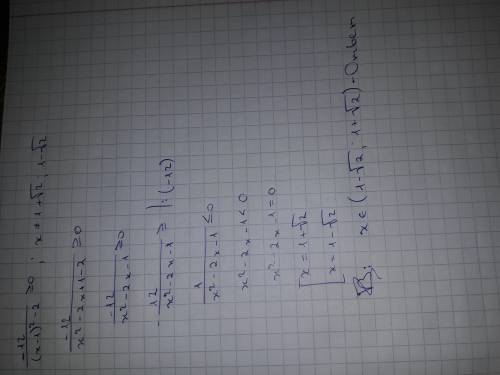 -12/((x-1)²-2) ≥0 ; x ≠ 1+√2 ; 1-√2
-12/(x²-2x+1-2) ≥0
-12/(x²-2x-1) ≥0
-12/(x²-2x-1) ≥ |:(-12)
1/(x²-2x-1) ≤0
x²-2x-1<0
x²-2x-1=0
[x=1+√2
[x=1-√2
x∈(1-√2; 1+√2)-Ответ